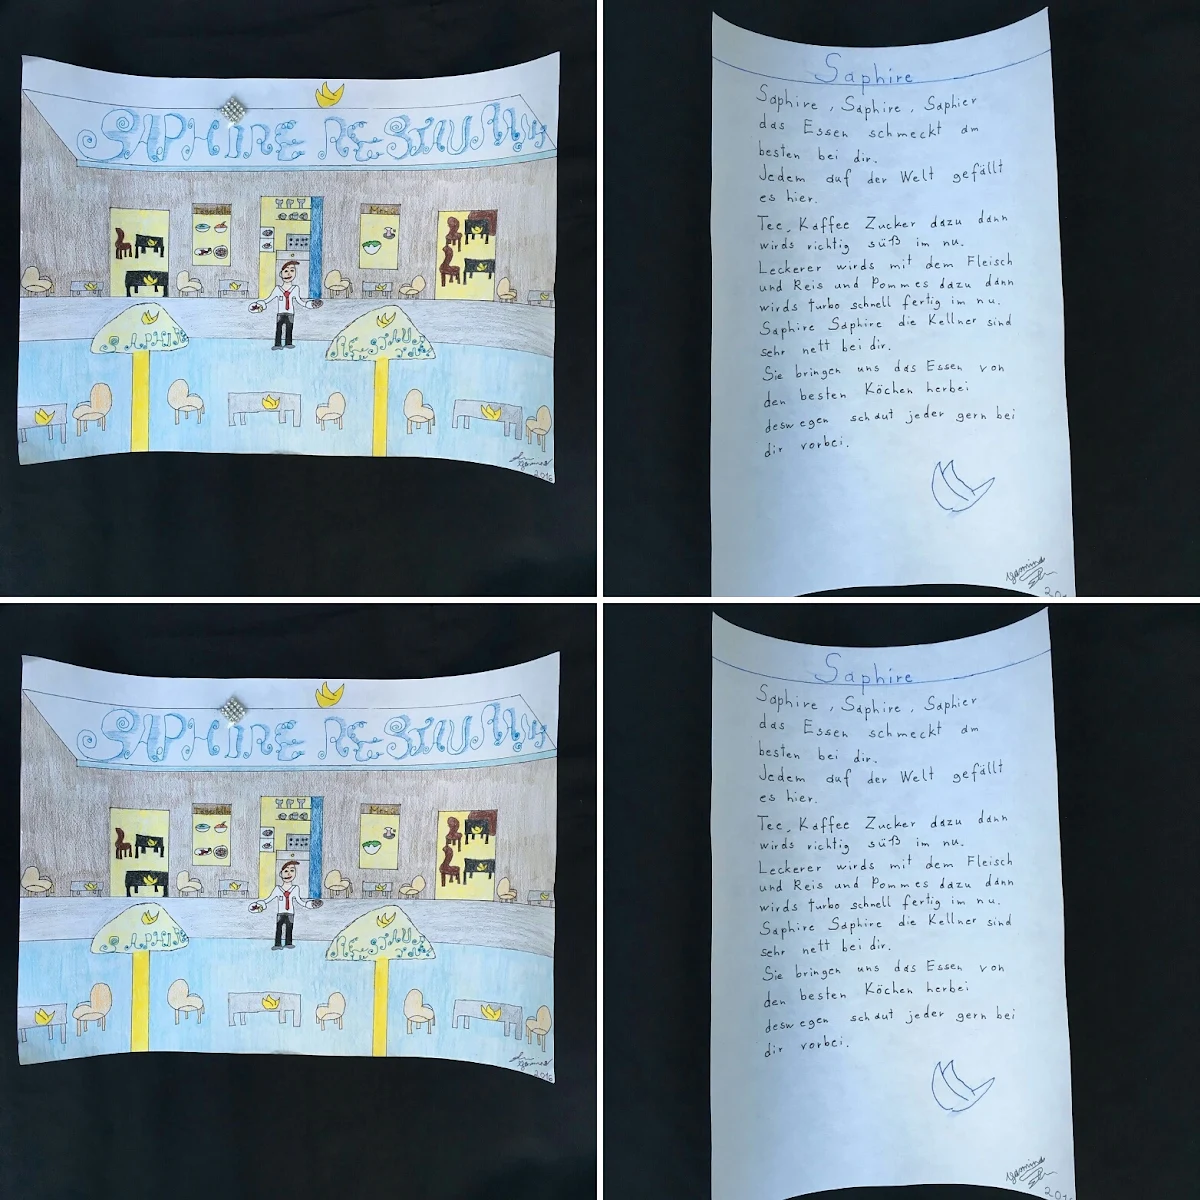 SAPHIRE RESTAURANT
Tageskarte
Menü
SAPHIRE
RESTAURANT
2016
Saphire
Saphire, Saphire, Saphier
das Essen schmeckt am
besten bei dir.
Jedem auf der Welt gefällt
es hier.
Tee, Kaffee Zucker dazu dann
wirds richtig süß im nu.
Leckerer wirds mit dem Fleisch
und Reis und Pommes dazu dann
wirds turbo schnell fertig im nu.
Saphire Saphire die Kellner sind
sehr nett bei dir.
Sie bringen uns das Essen von
den besten Köchen herbei
deswegen schaut jeder gern bei
dir vorbei.
Yamina
SAPHIRE RESTAURANT
Menü
SAPHIRE
RESTAURANT
2016
Saphire
Saphire, Saphire, Saphier
das Essen schmeckt am
besten bei dir.
Jedem auf der Welt gefällt
es hier.
Tee, Kaffee Zucker dazu dann
wirds richtig süß im nu.
Leckerer wirds mit dem Fleisch
und Reis und Pommes dazu dann
wirds turbo schnell fertig im nu.
Saphire Saphire die Kellner sind
sehr nett bei dir.
Sie bringen uns das Essen von
den besten Köchen herbei
deswegen schaut jeder gern bei
dir vorbei.
Yamina